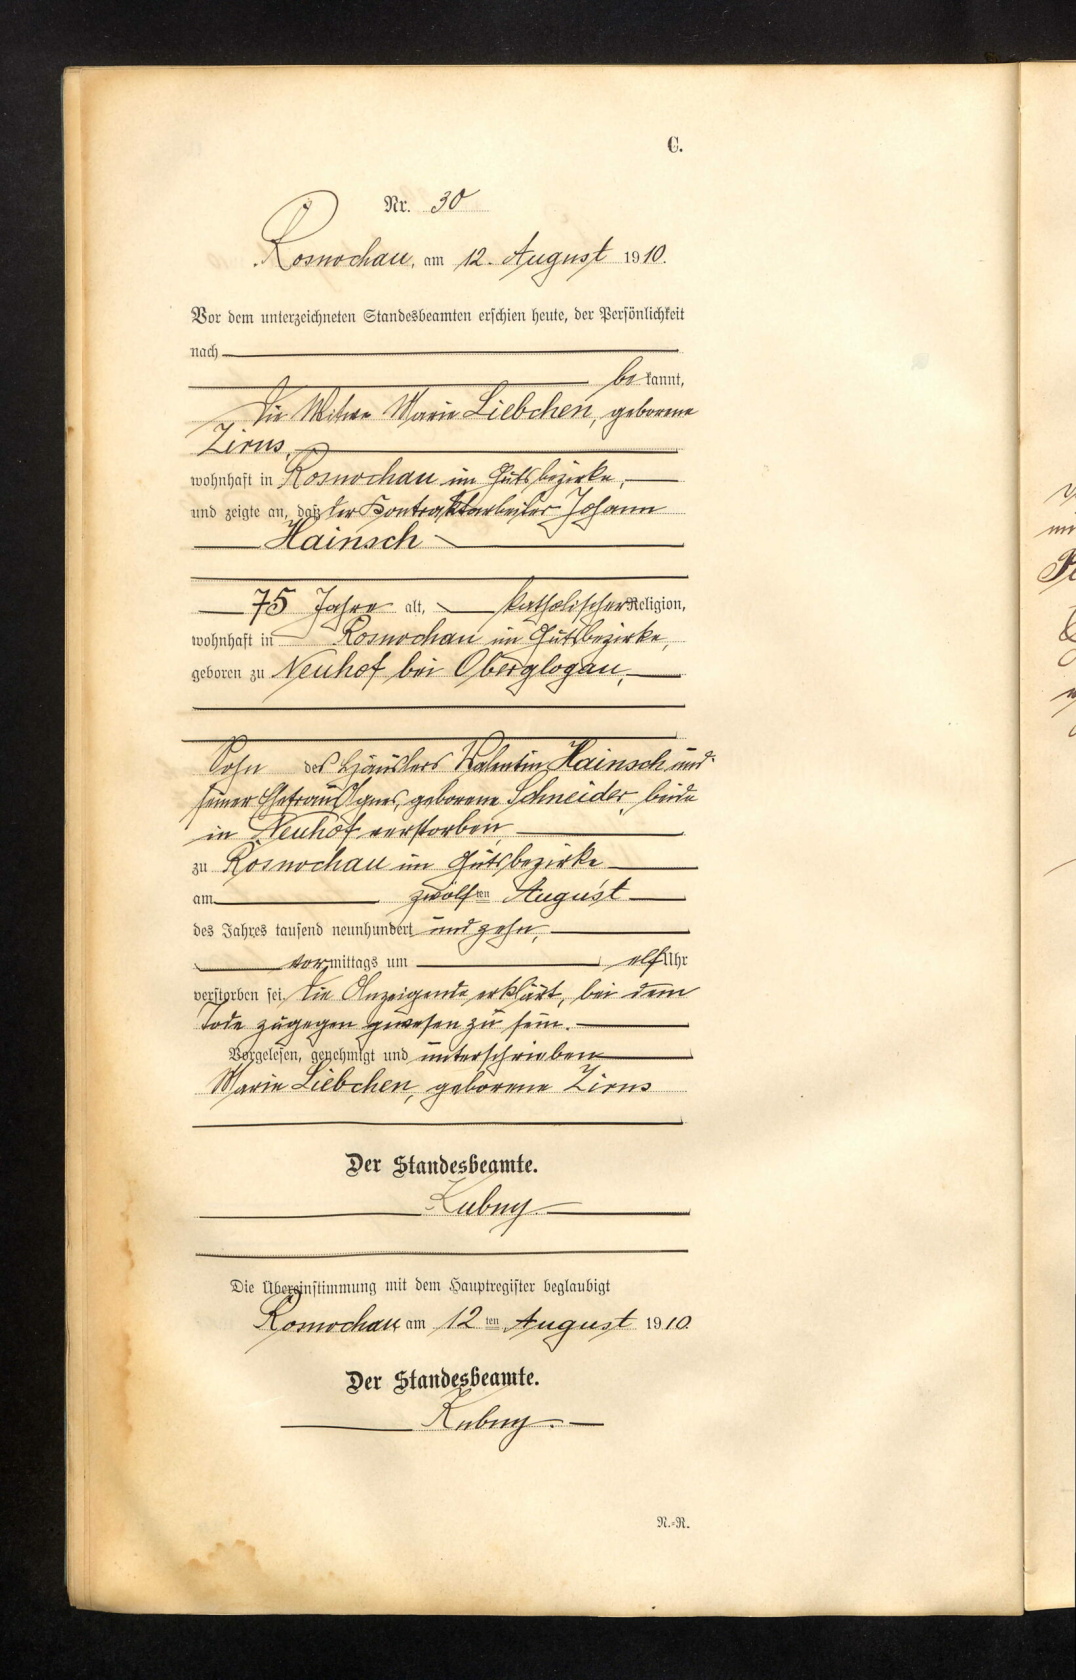 C.
Nr. 30
Rosnochau, am 12. August 1910.
Vor dem unterzeichneten Standesbeamten erschien heute, der Persönlichkeit
nach
bekannt,
die Witwe Marie Liebchen, geborene
Zirus,
wohnhaft in Rosnochau im Gutsbezirke,
und zeigte an, daß der Kontraktarbeiter Johann
Hainsch
75 Jahre alt, katholischer Religion,
wohnhaft in Rosnochau im Gutsbezirke,
geboren zu Neuhof bei Oberglogau,
Sohn des Häuslers Valentin Hainsch und
seiner Ehefrau Agnes, geborene Schneider, beide
in Neuhof verstorben
zu Rosnochau im Gutsbezirke
am zwölften August
des Jahres tausend neunhundert und zehn,
vormittags um elf Uhr
verstorben sei. Die Anzeigende erklärt, bei dem
Tode zugegen gewesen zu sein.
Vorgelesen, genehmigt und unterschrieben
Marie Liebchen, geborene Zirus
Der Standesbeamte.
Kubny
Die Übereinstimmung mit dem Hauptregister beglaubigt
Rosnochau am 12ten August 1910.
Der Standesbeamte.
Kubny.
N.-R.